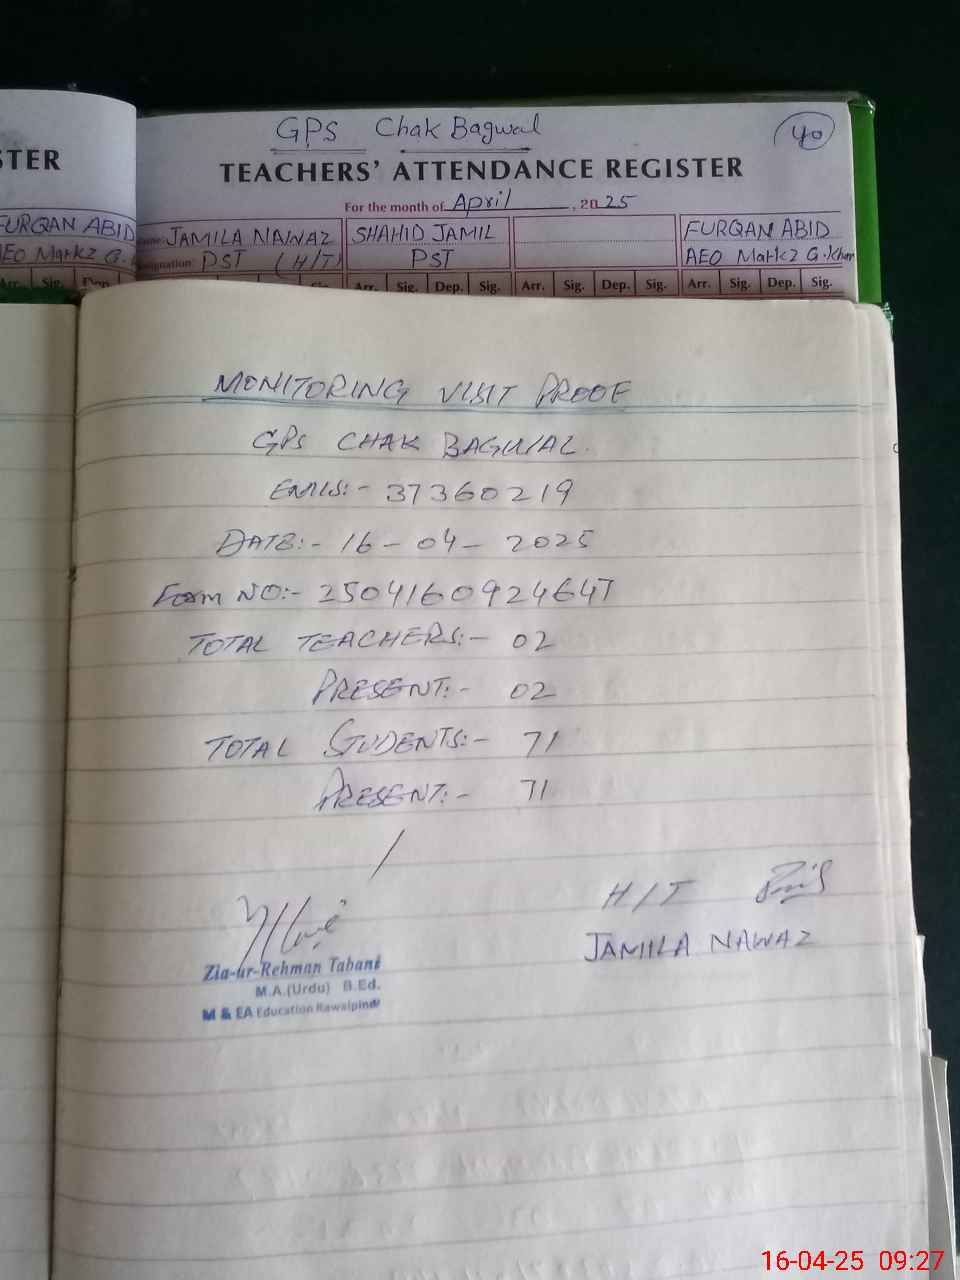 STER
FURQAN ABID
AEO Markz G.
Arr. Sig. Dep.
GPS Chak Bagwal
40
TEACHERS' ATTENDANCE REGISTER
For the month of April, 2025
Name: JAMILA NAWAZ SHAHID JAMIL FURQAN ABID
Designation: PST (H/T) PST AEO Markz G.Khan
Arr. Sig. Dep. Sig. Arr. Sig. Dep. Sig. Arr. Sig. Dep. Sig.
MONITORING VISIT PROOF
GPS CHAK BAGWAL.
EMIS:- 37360219
DATE:- 16-04-2025
Form NO:- 250416092464T
TOTAL TEACHERS:- 02
PRESENT:- 02
TOTAL STUDENTS:- 71
PRESENT:- 71
H/T
JAMILA NAWAZ
Zia-ur-Rehman Tabani
M.A.(Urdu) B.Ed.
M & EA Education Rawalpindi
16-04-25 09:27